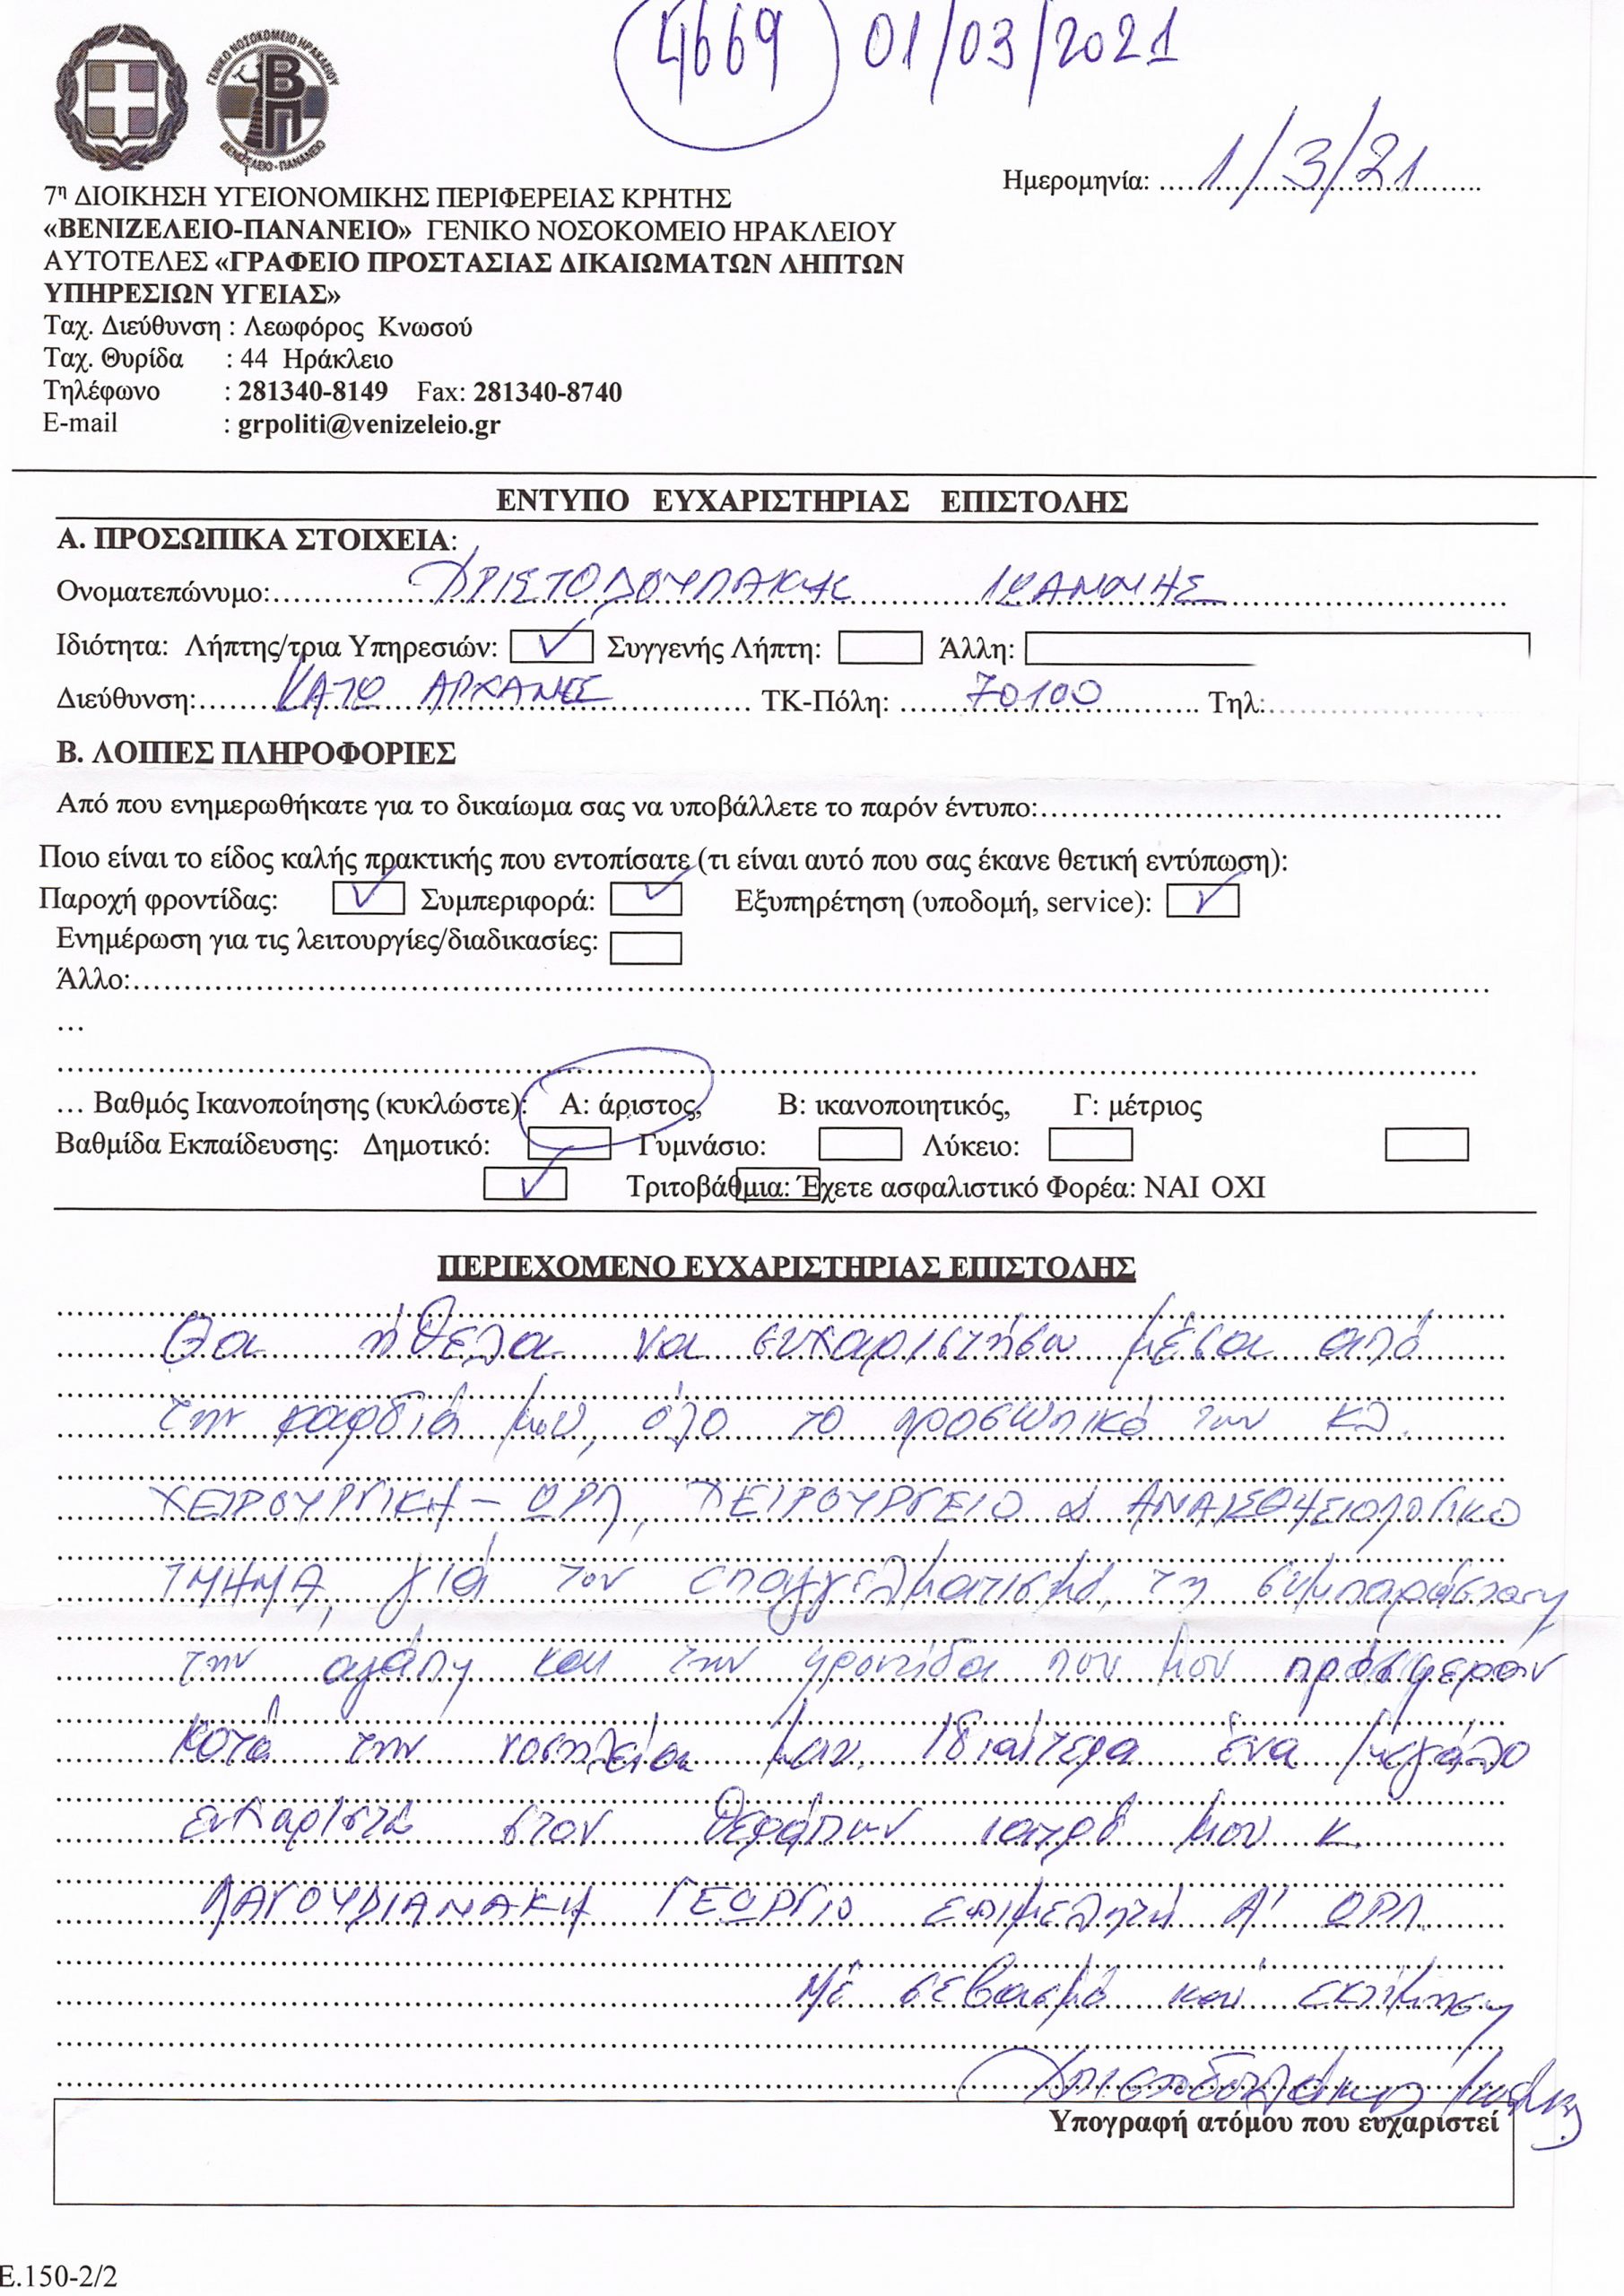 4669 01/03/2021
ΓΕΝΙΚΟ ΝΟΣΟΚΟΜΕΙΟ ΗΡΑΚΛΕΙΟΥ
ΒΠ
ΒΕΝΙΖΕΛΕΙΟ-ΠΑΝΑΝΕΙΟ
Ημερομηνία: 1/3/21
7η ΔΙΟΙΚΗΣΗ ΥΓΕΙΟΝΟΜΙΚΗΣ ΠΕΡΙΦΕΡΕΙΑΣ ΚΡΗΤΗΣ
«ΒΕΝΙΖΕΛΕΙΟ-ΠΑΝΑΝΕΙΟ» ΓΕΝΙΚΟ ΝΟΣΟΚΟΜΕΙΟ ΗΡΑΚΛΕΙΟΥ
ΑΥΤΟΤΕΛΕΣ «ΓΡΑΦΕΙΟ ΠΡΟΣΤΑΣΙΑΣ ΔΙΚΑΙΩΜΑΤΩΝ ΛΗΠΤΩΝ
ΥΠΗΡΕΣΙΩΝ ΥΓΕΙΑΣ»
Ταχ. Διεύθυνση : Λεωφόρος Κνωσού
Ταχ. Θυρίδα : 44 Ηράκλειο
Τηλέφωνο : 281340-8149 Fax: 281340-8740
E-mail : grpoliti@venizeleio.gr
ΕΝΤΥΠΟ ΕΥΧΑΡΙΣΤΗΡΙΑΣ ΕΠΙΣΤΟΛΗΣ
Α. ΠΡΟΣΩΠΙΚΑ ΣΤΟΙΧΕΙΑ:
Ονοματεπώνυμο: ΧΡΙΣΤΟΔΟΥΛΑΚΗΣ ΙΩΑΝΝΗΣ
Ιδιότητα: Λήπτης/τρια Υπηρεσιών: ✓ Συγγενής Λήπτη: Άλλη:
Διεύθυνση: ΚΑΤΩ ΑΡΧΑΝΕΣ ΤΚ-Πόλη: 70100 Τηλ:
Β. ΛΟΙΠΕΣ ΠΛΗΡΟΦΟΡΙΕΣ
Από που ενημερωθήκατε για το δικαίωμα σας να υποβάλλετε το παρόν έντυπο:
Ποιο είναι το είδος καλής πρακτικής που εντοπίσατε (τι είναι αυτό που σας έκανε θετική εντύπωση):
Παροχή φροντίδας: ✓ Συμπεριφορά: ✓ Εξυπηρέτηση (υποδομή, service): ✓
Ενημέρωση για τις λειτουργίες/διαδικασίες:
Άλλο:
…
… Βαθμός Ικανοποίησης (κυκλώστε): Α: άριστος, Β: ικανοποιητικός, Γ: μέτριος
Βαθμίδα Εκπαίδευσης: Δημοτικό: Γυμνάσιο: Λύκειο:
✓ Τριτοβάθμια: Έχετε ασφαλιστικό Φορέα: ΝΑΙ ΟΧΙ
ΠΕΡΙΕΧΟΜΕΝΟ ΕΥΧΑΡΙΣΤΗΡΙΑΣ ΕΠΙΣΤΟΛΗΣ
Θα ήθελα να ευχαριστήσω μέσα από
την καρδιά μου, όλο το προσωπικό των κλ.
ΧΕΙΡΟΥΡΓΙΚΗ - ΩΡΛ, ΧΕΙΡΟΥΡΓΕΙΟ & ΑΝΑΙΣΘΗΣΙΟΛΟΓΙΚΟ
ΤΜΗΜΑ, γιά τον επαγγελματισμό, τη συμπαράσταση
την αγάπη και την φροντίδα που μου πρόσφεραν
κατά την νοσηλεία μου. Ιδιαίτερα ένα μεγάλο
ευχαριστώ στον θεράπων ιατρό μου κ.
ΛΑΓΟΥΔΙΑΝΑΚΗ ΓΕΩΡΓΙΟ επιμελητή Α' ΩΡΛ.
Με σεβασμό και εκτίμηση
Χριστοδουλάκης Ιωάννης
Υπογραφή ατόμου που ευχαριστεί
Ε.150-2/2